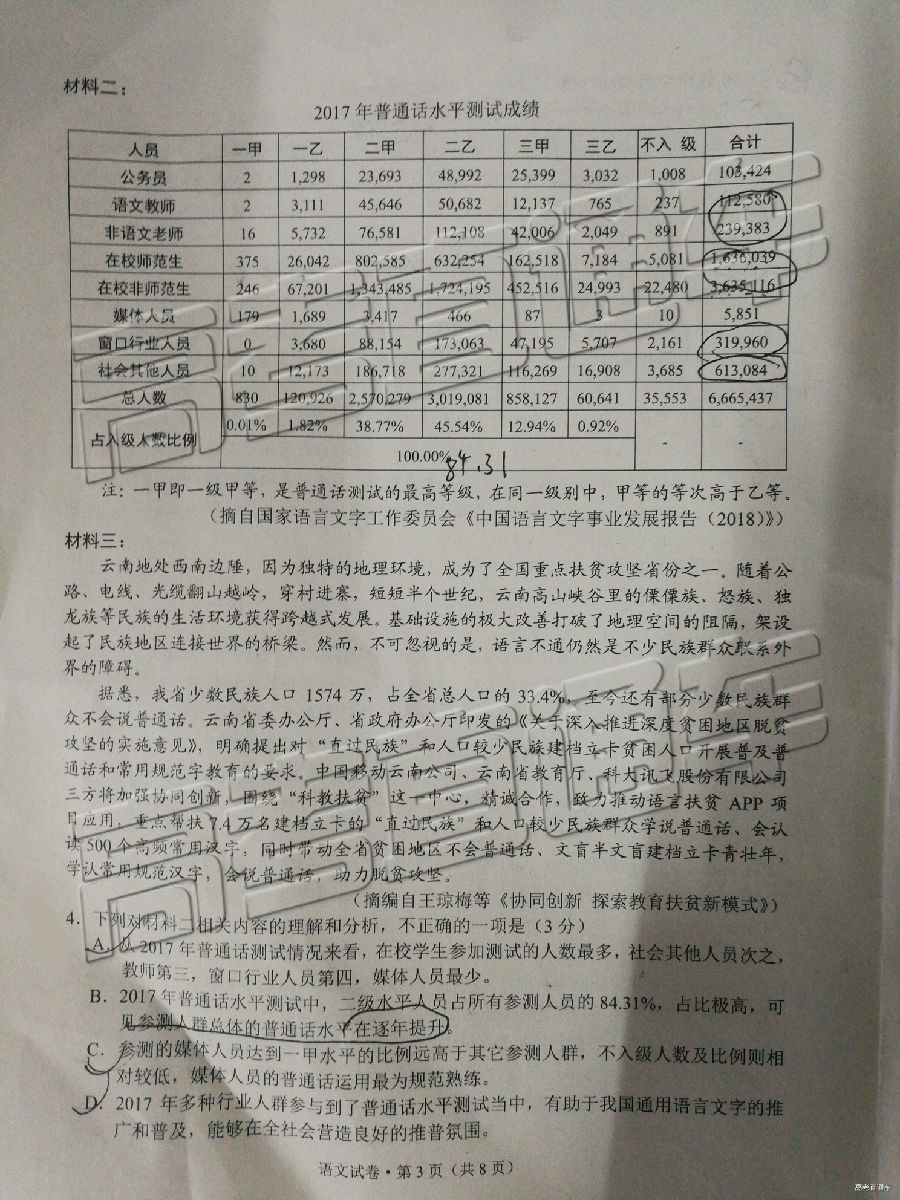 材料二：
2017 年普通话水平测试成绩
人员 一甲 一乙 二甲 二乙 三甲 三乙 不入 级 合计
公务员 2 1,298 23,693 48,992 25,399 3,032 1,008 103,424
语文教师 2 3,111 45,646 50,682 12,137 765 237 112,580
非语文老师 16 5,732 76,581 112,108 42,006 2,049 891 239,383
在校师范生 375 26,042 802,585 632,254 162,518 7,184 5,081 1,636,039
在校非师范生 246 67,201 1,343,485 1,724,195 452,516 24,993 22,480 3,635,116
媒体人员 179 1,689 3,417 466 87 3 10 5,851
窗口行业人员 0 3,680 88,154 173,063 47,195 5,707 2,161 319,960
社会其他人员 10 12,173 186,718 277,321 116,269 16,908 3,685 613,084
总人数 830 120,926 2,570,279 3,019,081 858,127 60,641 35,553 6,665,437
占入级人数比例 0.01% 1.82% 38.77% 45.54% 12.94% 0.92% - -
100.00%
84.31
注：一甲即一级甲等，是普通话测试的最高等级，在同一级别中，甲等的等次高于乙等。
（摘自国家语言文字工作委员会《中国语言文字事业发展报告（2018）》）
材料三：
云南地处西南边陲，因为独特的地理环境，成为了全国重点扶贫攻坚省份之一。随着公
路、电线、光缆翻山越岭，穿村进寨，短短半个世纪，云南高山峡谷里的傈僳族、怒族、独
龙族等民族的生活环境获得跨越式发展。基础设施的极大改善打破了地理空间的阻隔，架设
起了民族地区连接世界的桥梁。然而，不可忽视的是，语言不通仍然是不少民族群众联系外
界的障碍。
据悉，我省少数民族人口 1574 万，占全省总人口的 33.4%，至今还有部分少数民族群
众不会说普通话。云南省委办公厅、省政府办公厅印发的《关于深入推进深度贫困地区脱贫
攻坚的实施意见》，明确提出对“直过民族”和人口较少民族建档立卡贫困人口开展普及普
通话和常用规范字教育的要求。中国移动云南公司、云南省教育厅、科大讯飞股份有限公司
三方将加强协同创新，围绕“科教扶贫”这一中心，精诚合作，致力推动语言扶贫 APP 项
目应用，重点帮扶 7.4 万名建档立卡的“直过民族”和人口较少民族群众学说普通话、会认
读 500 个高频常用汉字，同时带动全省贫困地区不会普通话、文盲半文盲建档立卡青壮年，
学认常用规范汉字，会说普通话，助力脱贫攻坚。
（摘编自王琼梅等《协同创新 探索教育扶贫新模式》）
4. 下列对材料二相关内容的理解和分析，不正确的一项是（3 分）
A. 从 2017 年普通话测试情况来看，在校学生参加测试的人数最多，社会其他人员次之，
教师第三，窗口行业人员第四，媒体人员最少。
B. 2017 年普通话水平测试中，二级水平人员占所有参测人员的 84.31%，占比极高，可
见参测人群总体的普通话水平在逐年提升。
C. 参测的媒体人员达到一甲水平的比例远高于其它参测人群，不入级人数及比例则相
对较低，媒体人员的普通话运用最为规范熟练。
D. 2017 年多种行业人群参与到了普通话水平测试当中，有助于我国通用语言文字的推
广和普及，能够在全社会营造良好的推普氛围。
语文试卷·第 3 页（共 8 页）
高考直通车
高考直通车
高考直通车